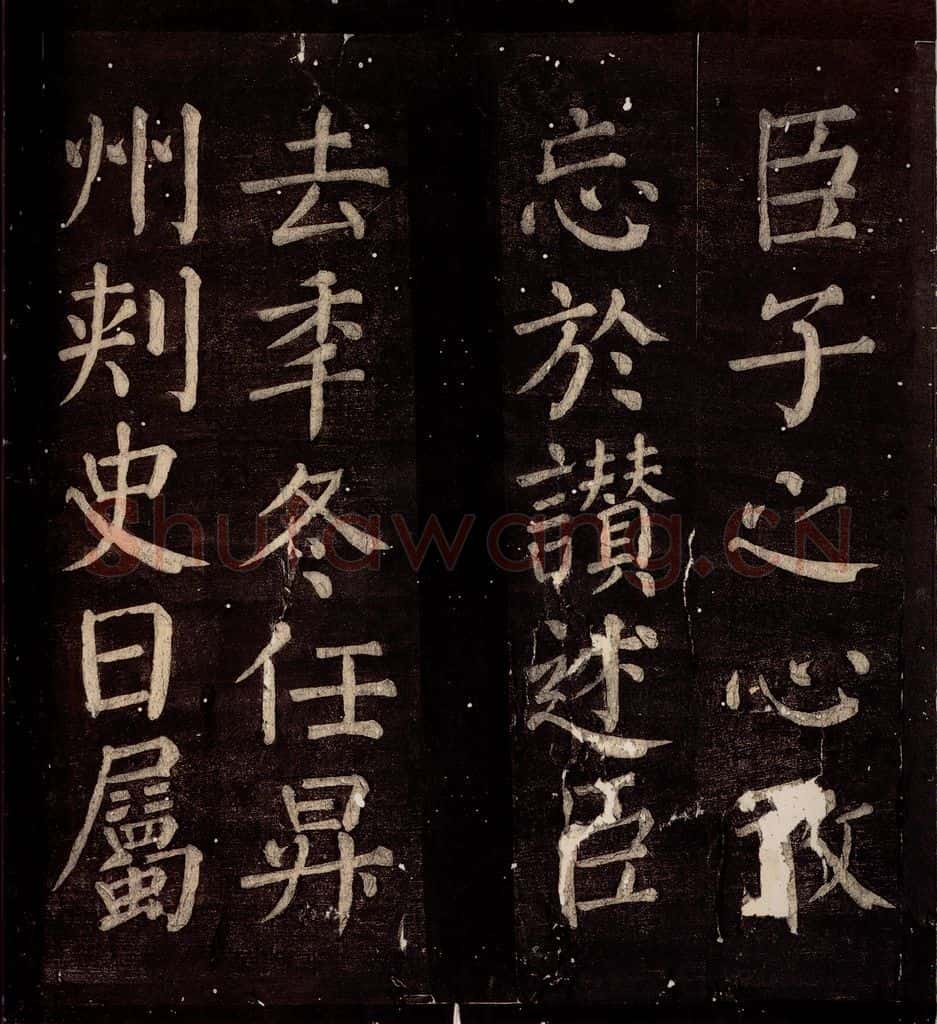 臣子之心敢
忘於讚述臣
去秊冬任昇
州刺史日屬
Shufawang.CN